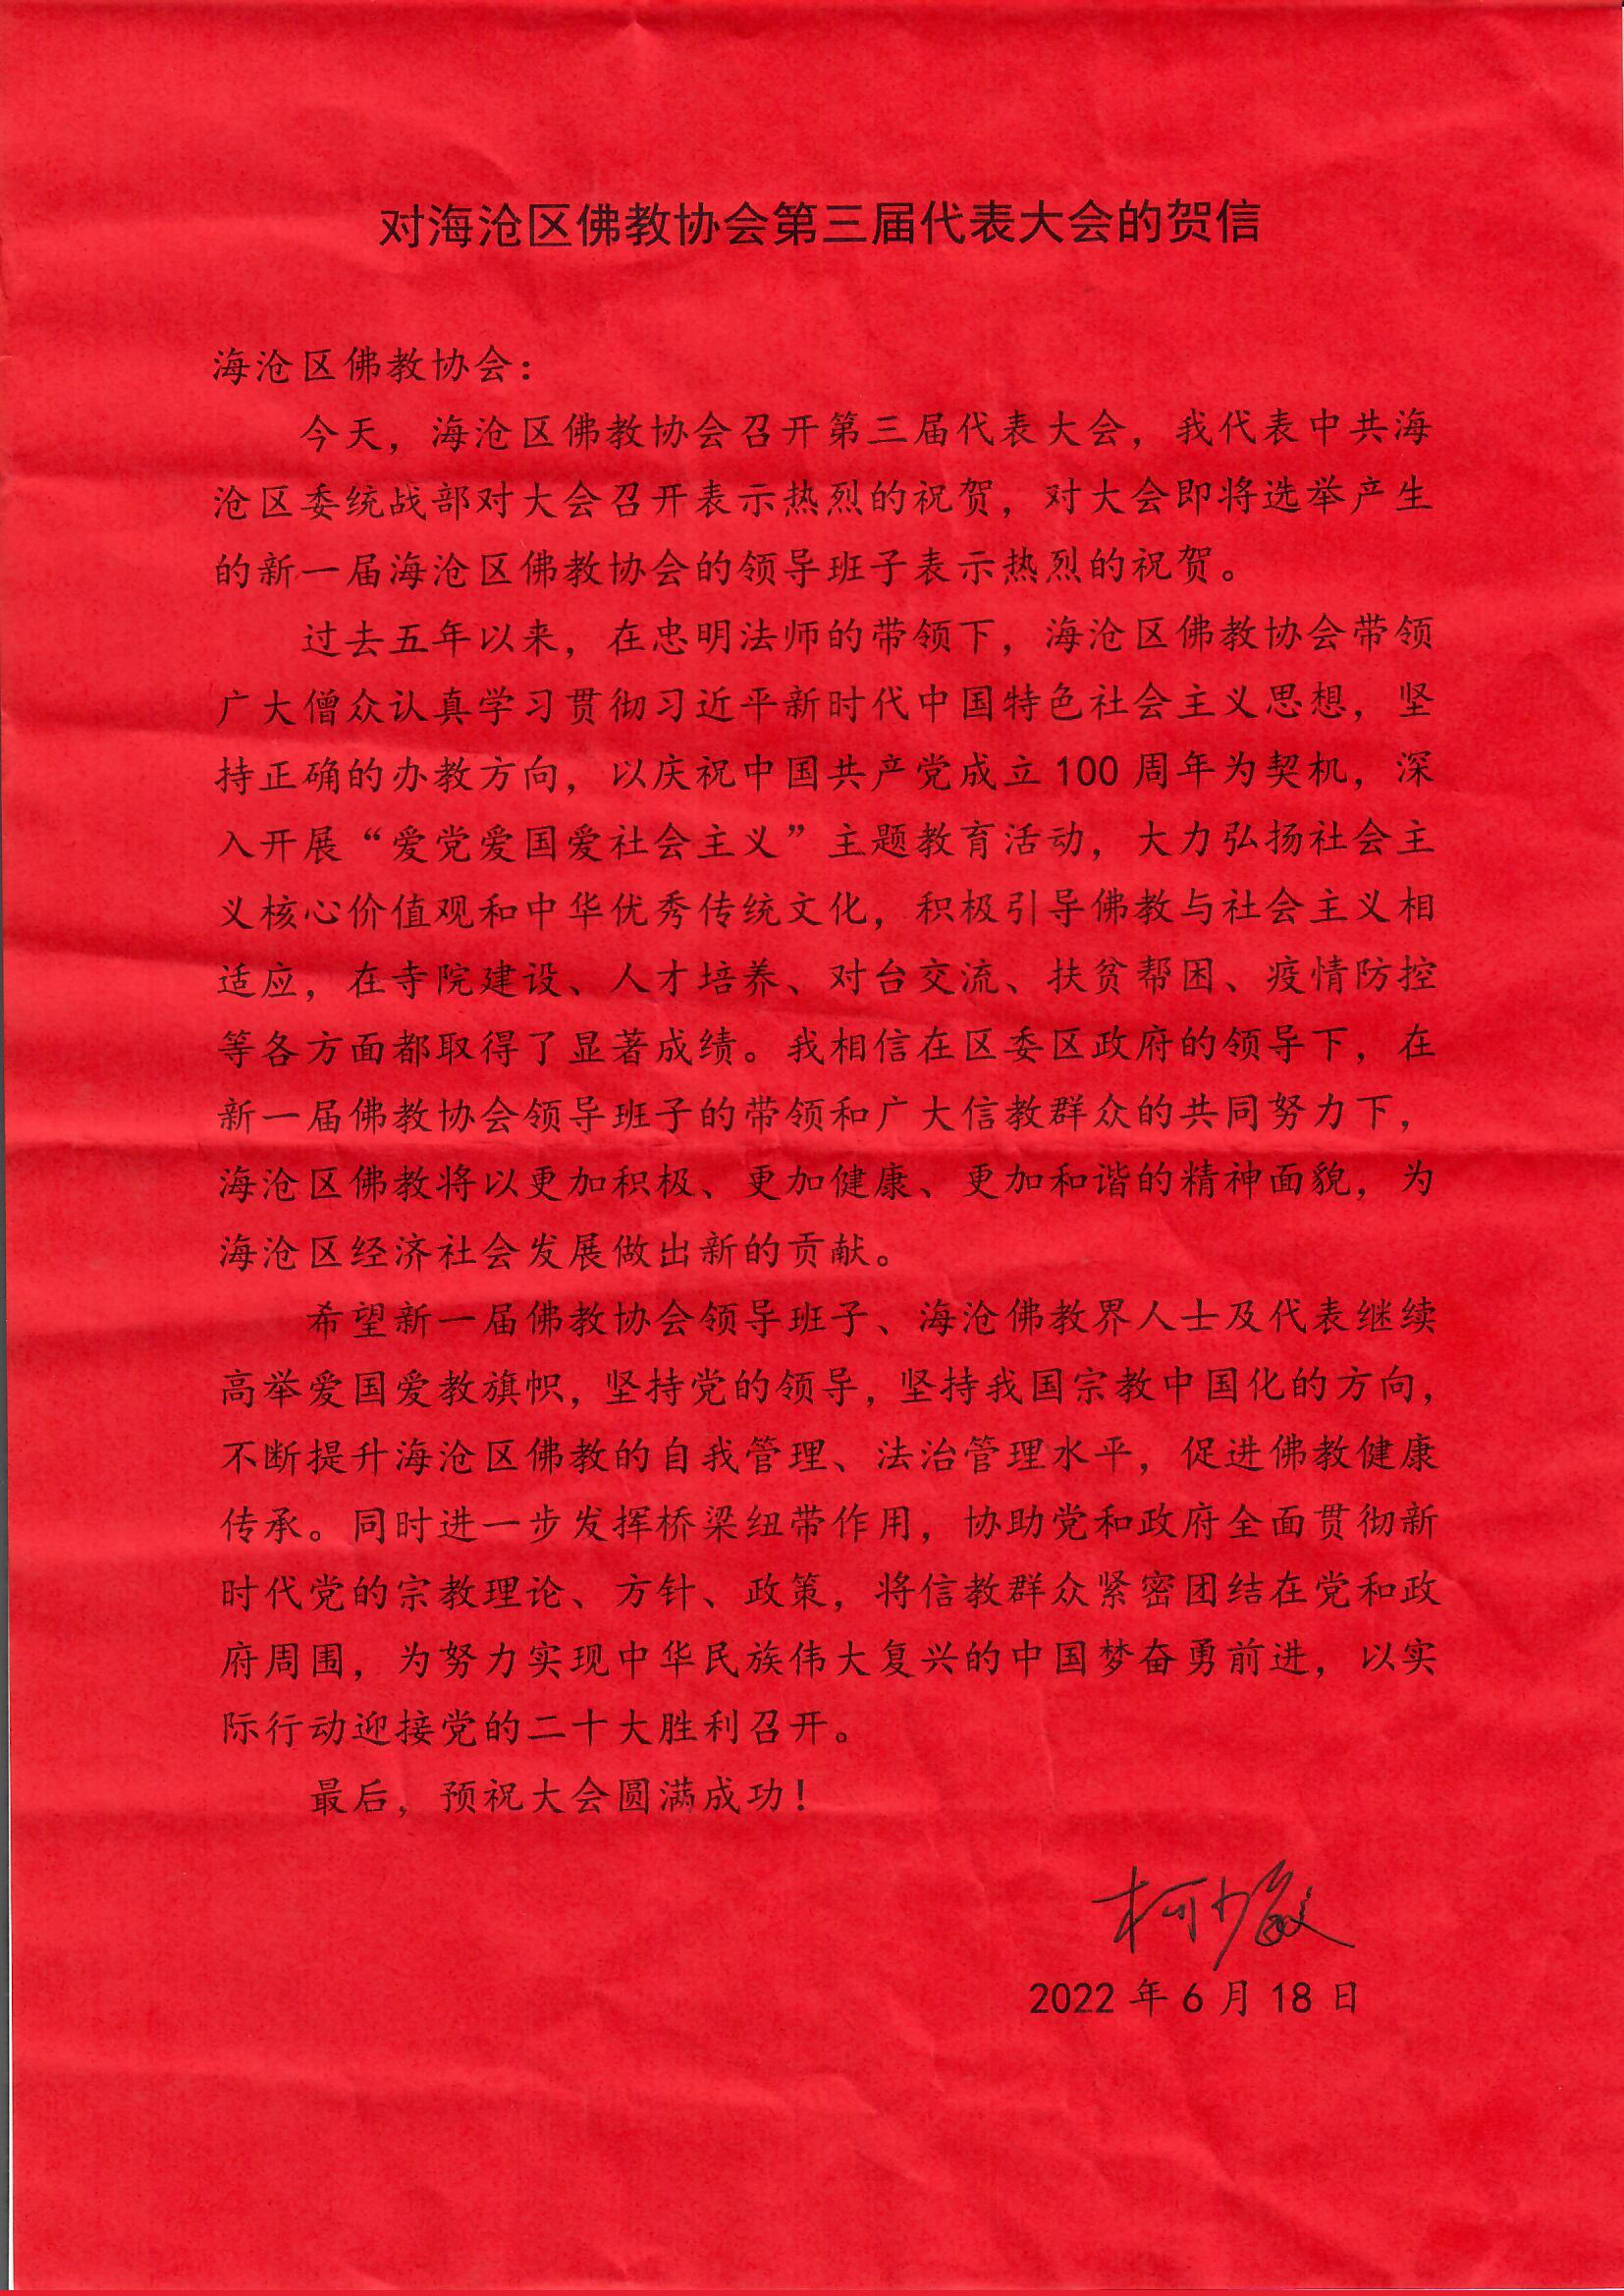 对海沧区佛教协会第三届代表大会的贺信
海沧区佛教协会：
今天，海沧区佛教协会召开第三届代表大会，我代表中共海
沧区委统战部对大会召开表示热烈的祝贺，对大会即将选举产生
的新一届海沧区佛教协会的领导班子表示热烈的祝贺。
过去五年以来，在忠明法师的带领下，海沧区佛教协会带领
广大僧众认真学习贯彻习近平新时代中国特色社会主义思想，坚
持正确的办教方向，以庆祝中国共产党成立100周年为契机，深
入开展“爱党爱国爱社会主义”主题教育活动，大力弘扬社会主
义核心价值观和中华优秀传统文化，积极引导佛教与社会主义相
适应，在寺院建设、人才培养、对台交流、扶贫帮困、疫情防控
等各方面都取得了显著成绩。我相信在区委区政府的领导下，在
新一届佛教协会领导班子的带领和广大信教群众的共同努力下，
海沧区佛教将以更加积极、更加健康、更加和谐的精神面貌，为
海沧区经济社会发展做出新的贡献。
希望新一届佛教协会领导班子、海沧佛教界人士及代表继续
高举爱国爱教旗帜，坚持党的领导，坚持我国宗教中国化的方向，
不断提升海沧区佛教的自我管理、法治管理水平，促进佛教健康
传承。同时进一步发挥桥梁纽带作用，协助党和政府全面贯彻新
时代党的宗教理论、方针、政策，将信教群众紧密团结在党和政
府周围，为努力实现中华民族伟大复兴的中国梦奋勇前进，以实
际行动迎接党的二十大胜利召开。
最后，预祝大会圆满成功！
柯少敏
2022年6月18日